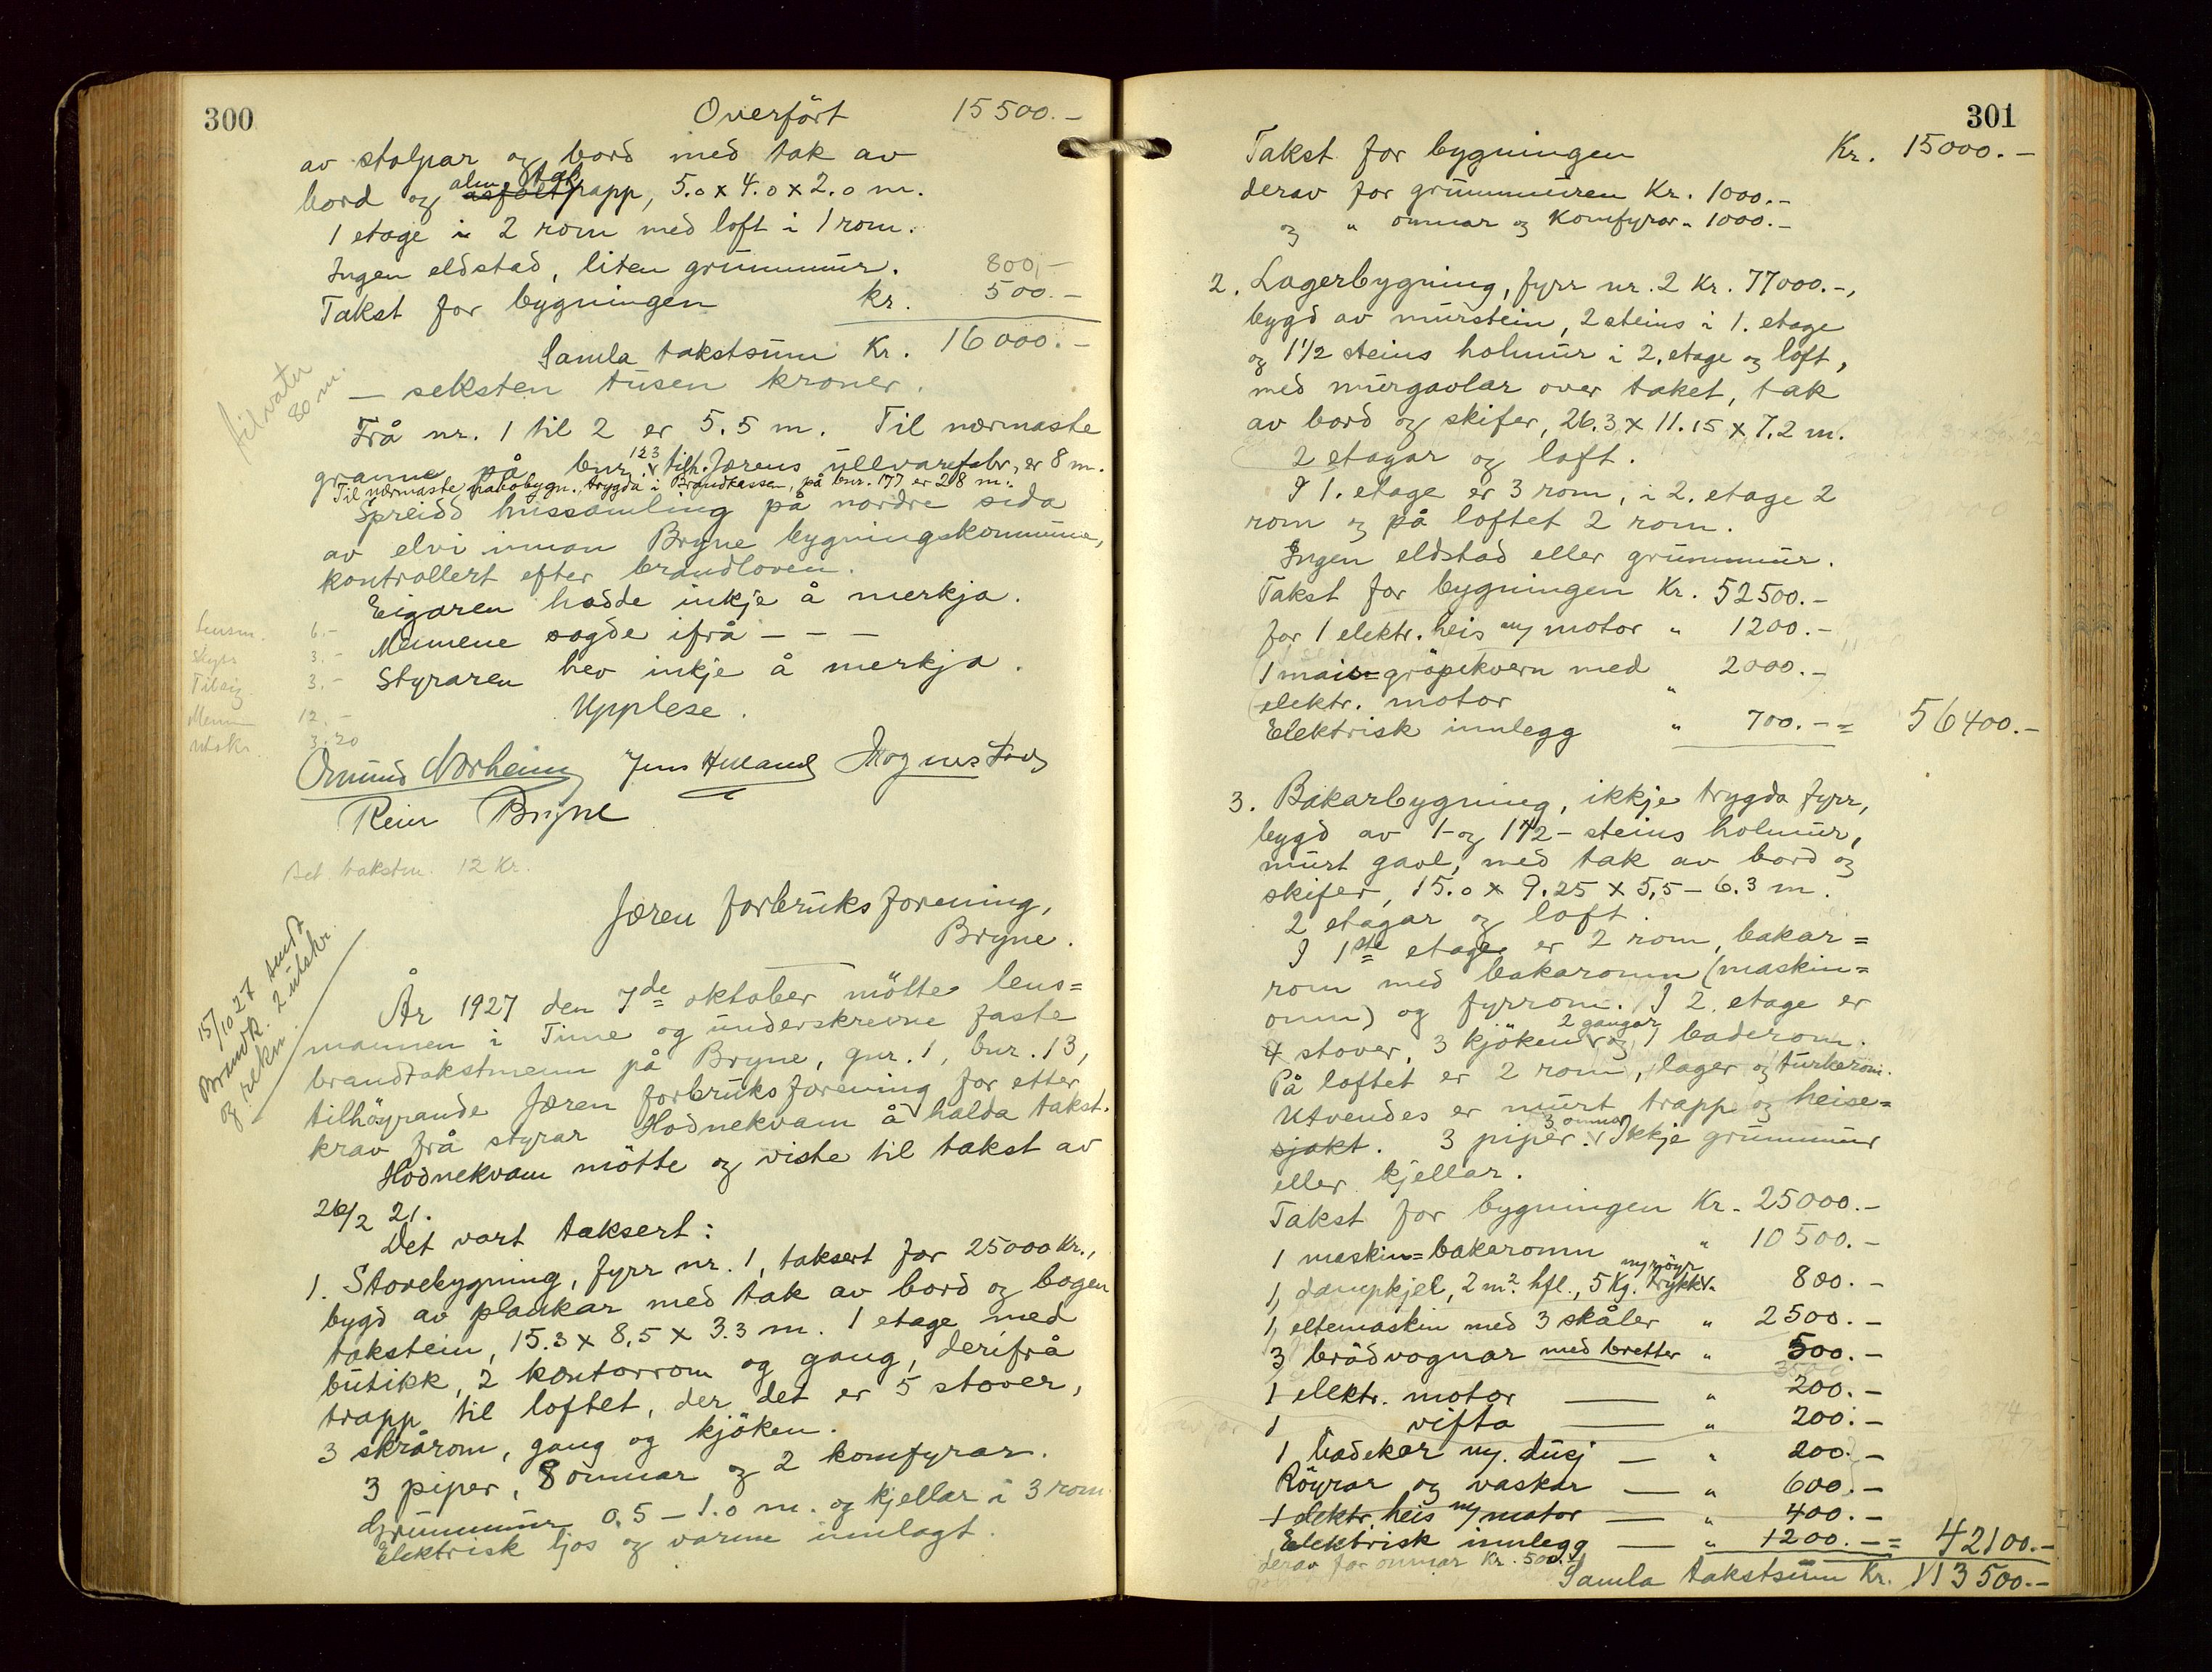 300
Overført 15500.-
av stolpar og bord med tak av
bord og asfaltpapp, 5.0 x 4.0 x 2.0 m.
alm. tak
1 etage i 2 rom med loft i 1 rom.
Ingen eldstad, liten grunnmur. 800,-
Takst for bygningen kr. 500.-
Samla takstsum Kr. 16000.-
— seksten tusen kroner.
80 m.
Frå nr. 1 til 2 er 5.5 m. Til nærmaste
granne på bnr. 123 tilh. Jærens ullvarefabr. er 8 m.
Til nærmaste nabobygn., trygda i Brandkassen, på bnr. 177 er 28 m.
Spreidd hussamling på nordre sida
av elvi innan Bryne bygningskommune,
kontrollert efter brandloven.
Eigaren hadde inkje å merkja.
Mennene sagde ifrå - - -
Styraren hev inkje å merkja.
Upplese.
Lensm. 6.-
Skyss 3.-
3.-
Menn 12.-
Utskr. 3.20
Omund Norheim Jens Hetland Magnus
Rein Bryne
Bet. takstm. 12 Kr.
Jæren forbruksforening,
Bryne.
15/10 27 sendt
Brandk. 2 utskr.
og rekn.
År 1927 den 7de oktober møtte lens=
mannen i Time og underskrevne faste
brandtakstmenn på Bryne, gnr. 1, bnr. 13,
tilhøyrande Jæren forbruksforening for etter
krav frå styrar Hodnekvam å halda takst.
Hodnekvam møtte og viste til takst av
26/2 21.
Det vart taksert:
1. Storebygning, fyrr nr. 1, taksert for 25000 Kr.,
bygd av plankar med tak av bord og bogen
takstein, 15.3 x 8.5 x 3.3 m. 1 etage med
butikk, 2 kontorrom og gang, derifrå
trapp til loftet, der det er 5 stover,
3 skrårom, gang og kjøken.
3 piper, 8 omnar og 2 komfyrar.
Grunnmur 0.5 - 1.0 m. og kjellar i 3 rom
Elektrisk ljos og varme innlagt.
301
Takst for bygningen Kr. 15000.-
derav for grunnmuren Kr. 1000.-
og " omnar og Komfyrar " 1000.-
2. Lagerbygning, fyrr nr. 2 Kr. 77000.-,
bygd av murstein, 2 steins i 1. etage
og 1 1/2 steins holmur i 2. etage og loft,
med murgavlar over taket, tak
av bord og skifer, 26.3 x 11.15 x 7.2 m.
2 etagar og loft.
I 1. etage er 3 rom, i 2. etage 2
rom og på loftet 2 rom.
Ingen eldstad eller grunnmur.
Takst for bygningen Kr. 52500.-
for 1 elektr. heis m/ motor " 1200.-
1 mais=grøpekvern med 2000.-
elektr. motor "
Elektrisk innlegg " 700.- = 56400.-
3. Bakarbygning, ikkje trygda fyrr,
bygd av 1- og 1 1/2- steins holmur,
murt gavl, med tak av bord og
skifer, 15.0 x 9.25 x 5.5 - 6.3 m.
2 etagar og loft.
I 1ste etage er 2 rom, bakar=
rom med bakaromn (maskin=
omn) og fyrrom. I 2. etage er
4 stover, 3 kjøken, 2 gangar og 1 baderom.
På loftet er 2 rom, lager og turkerom.
Utvendes er murt trapp og heise=
sjakt. 3 piper. 3 omnar Ikkje grunnmur
eller kjellar.
Takst for bygningen Kr. 25000.-
1 maskin=bakaromn " 10500.-
1 dampkjel, 2 m² hfl., 5 Kg. trykk m/røyr " 800.-
1 eltemaskin med 3 skåler " 2500.-
3 brødvognar med bretter " 500.-
1 elektr. motor — " 200.-
1 vifta — " 200.-
1 badekar m. dusj — " 200.-
Røyrar og vaskar — " 600.-
1 elektr. heis m/ motor — " 400.-
Elektrisk innlegg — " 1200.- = 42100.-
derav for omnar Kr. 500.-
Samla takstsum Kr. 113500.-